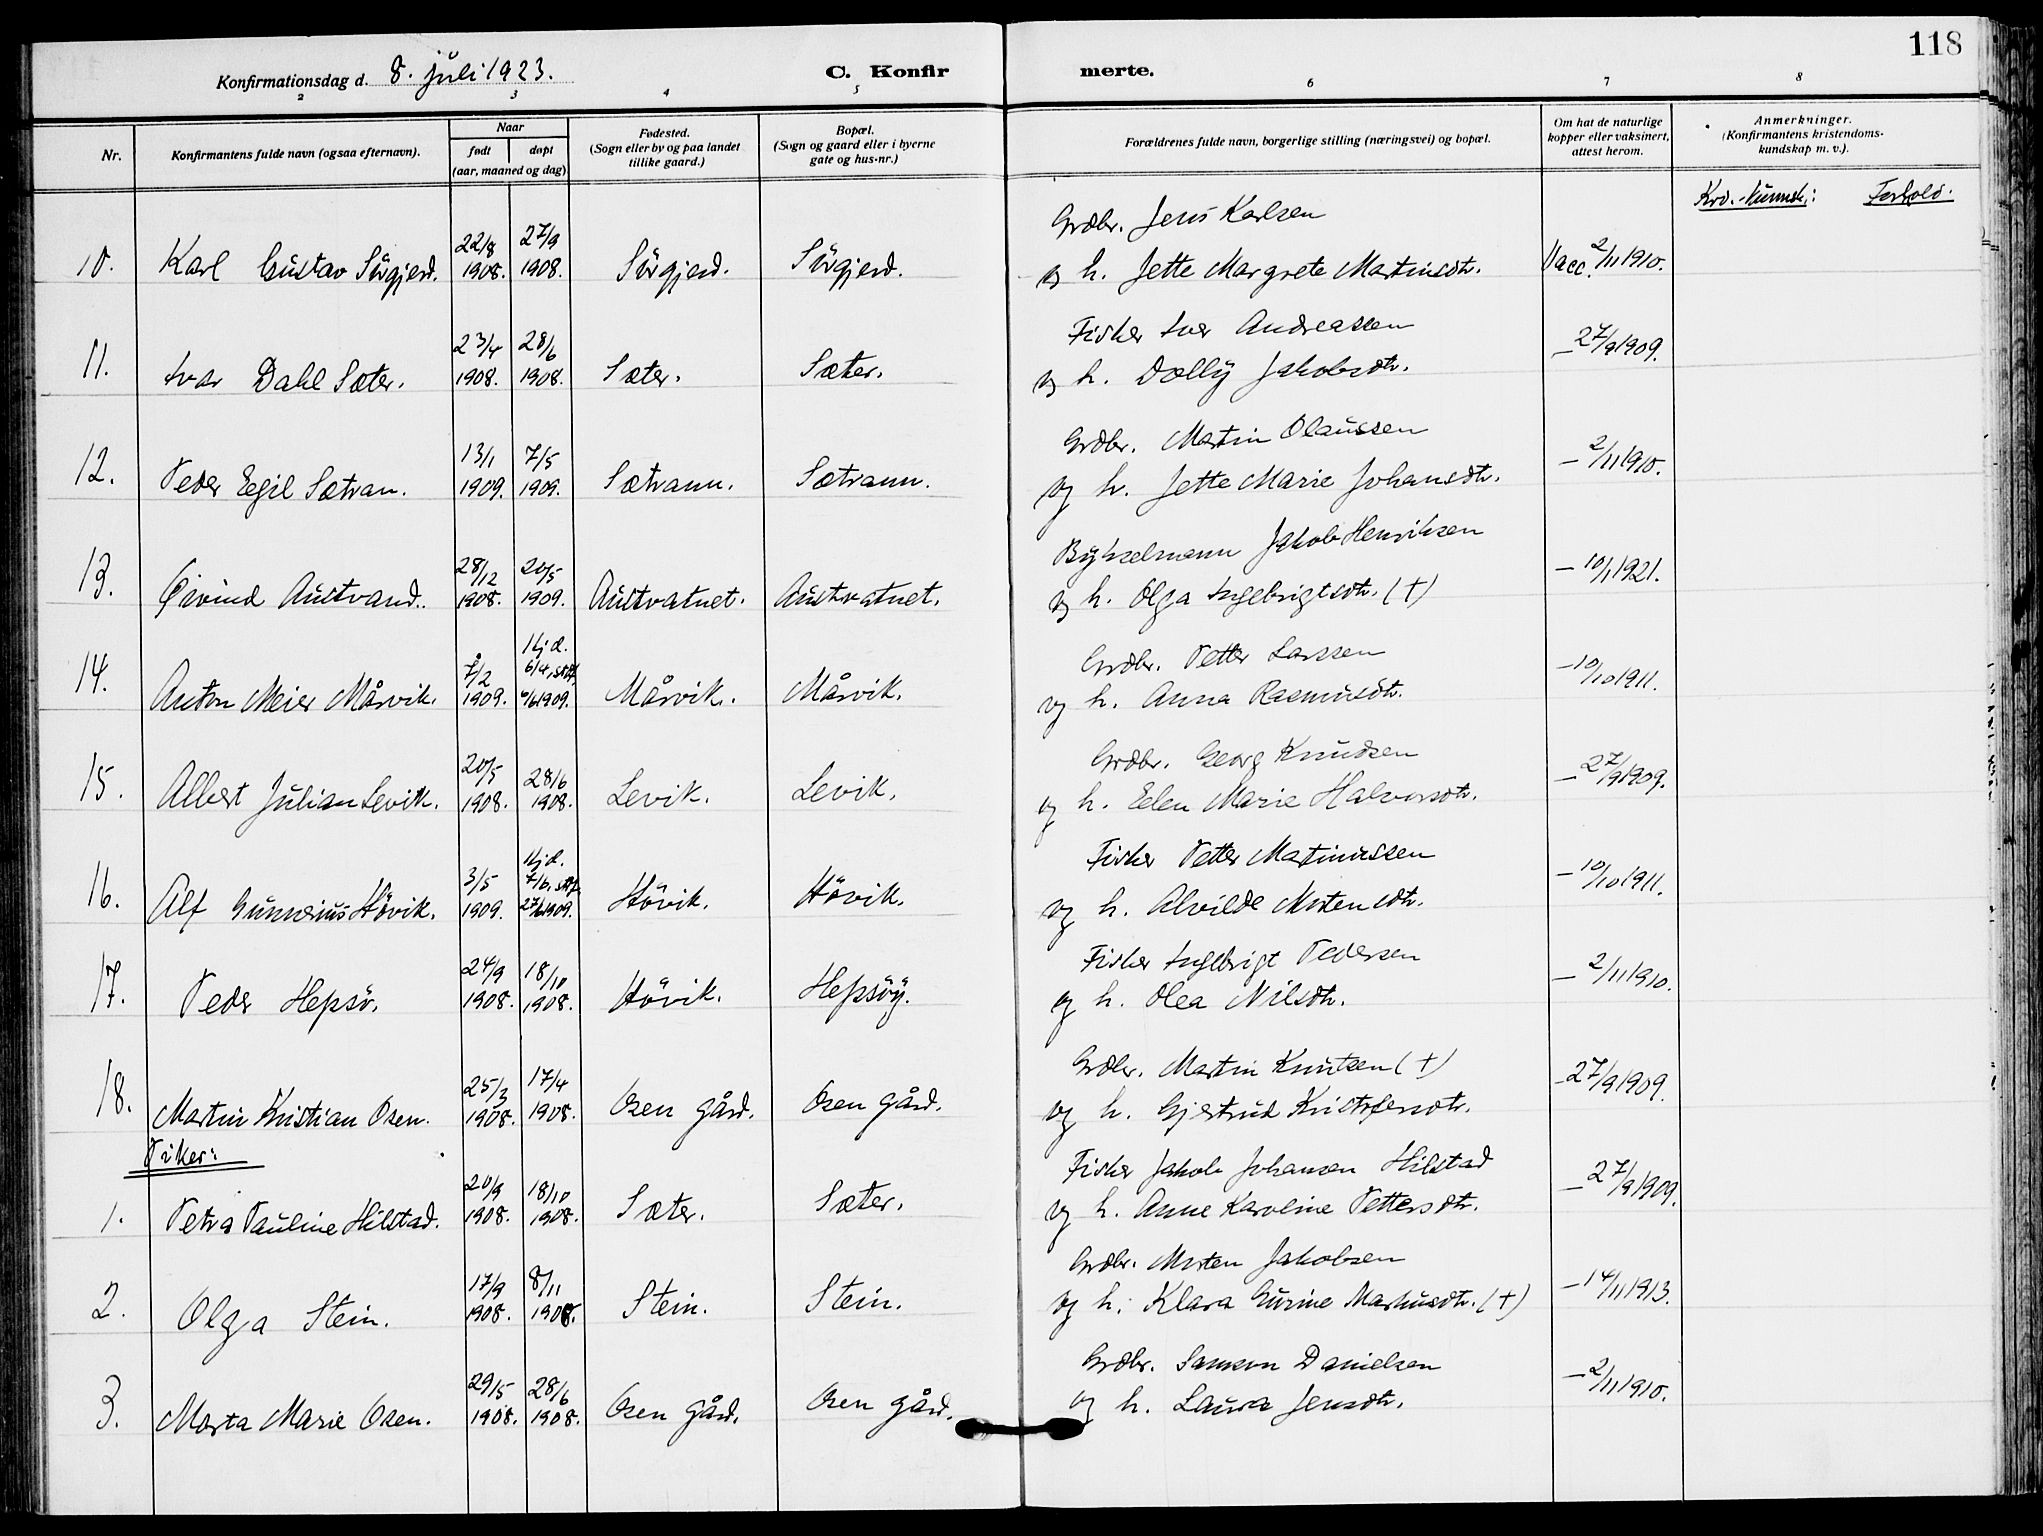 118
Konfirmationsdag d. 8. juli 1923.
C. Konfirmerte.
2 3 4 5 6 7 8
Nr.
Konfirmantens fulde navn (ogsaa efternavn).
Naar
født døpt
(aar, maaned og dag)
Fødested.
(Sogn eller by og paa landet
tillike gaard.)
Bopæl.
(Sogn og gaard eller i byerne
gate og hus-nr.)
Forældrenes fulde navn, borgerlige stilling (næringsvei) og bopæl.
Om hat de naturlige
kopper eller vaksinert,
attest herom.
Anmerkninger.
(Konfirmantens kristendoms-
kundskap m. v.).
Krd.-kunnsk.: Forhold:
22/8 27/9 Grdbr. Jens Karlsen
10. Karl Gustav Sörgjerd. 1908. 1908. Sörgjerd. Sörgjerd. og h. Jette Margrete Martinsdtr. Vacc. 2/11 1910.
23/4 28/6 Fisker Iver Andreassen
11. Ivar Dahl Sæter. 1908. 1908. Sæter. Sæter. og h. Dolly Jakobsdtr. – 27/9 1909.
13/1 7/5 Grdbr. Martin Olaussen
12. Peder Egil Sætran. 1909. 1909. Sætrann. Sætrann. og h. Jette Marie Johansdtr. – 2/11 1910.
28/12 20/5 Bykselmann Jakob Henriksen
13. Öivind Austvand. 1908. 1909. Austvatnet. Austvatnet. og h. Olga Ingebrigtsdtr. (+) – 10/1 1921.
7/2 Hj.d. 6/4, stf. Grdbr. Petter Larssen
14. Anton Meier Mårvik. 1909. 1909. Mårvik. Mårvik. og h. Anna Rasmusdtr. – 10/10 1911.
20/5 28/6 Grdbr. Georg Knudsen
15. Albert Julian Levik. 1908. 1908. Levik. Levik. og h. Elen Marie Halvorsdtr. – 27/9 1909.
3/5 Hj.d. 7/6, stf. Fisker Petter Martinussen
16. Alf Gunnerius Hövik. 1909. 27/6 1909. Hövik. Hövik. og h. Alvilde Mortensdtr. – 10/10 1911.
24/9 18/10 Fisker Ingebrigt Pedersen
17. Peder Hepsö. 1908. 1908. Hövik. Hepsöy. og h. Olea Nilsdtr. – 2/11 1910.
25/3 17/4 Grdbr. Martin Knutsen (+)
18. Martin Kristian Osen. 1908. 1908. Osen gård. Osen gård. og h. Gjertrud Kristofersdtr. – 27/9 1909.
Piker:
20/9 18/10 Fisker Jakob Johansen Hilstad
1. Petra Pauline Hilstad. 1908. 1908. Sæter. Sæter. og h. Anne Karoline Pettersdtr. – 27/9 1909.
17/9 8/11 Grdbr. Morten Jakobsen
2. Olga Stein. 1908. 1908. Stein. Stein. og h. Klara Gurine Markusdtr. (+) – 14/11 1913.
29/5 28/6 Grdbr. Samson Danielsen
3. Marta Marie Osen. 1908. 1908. Osen gård. Osen gård. og h. Laura Jensdtr. – 2/11 1910.